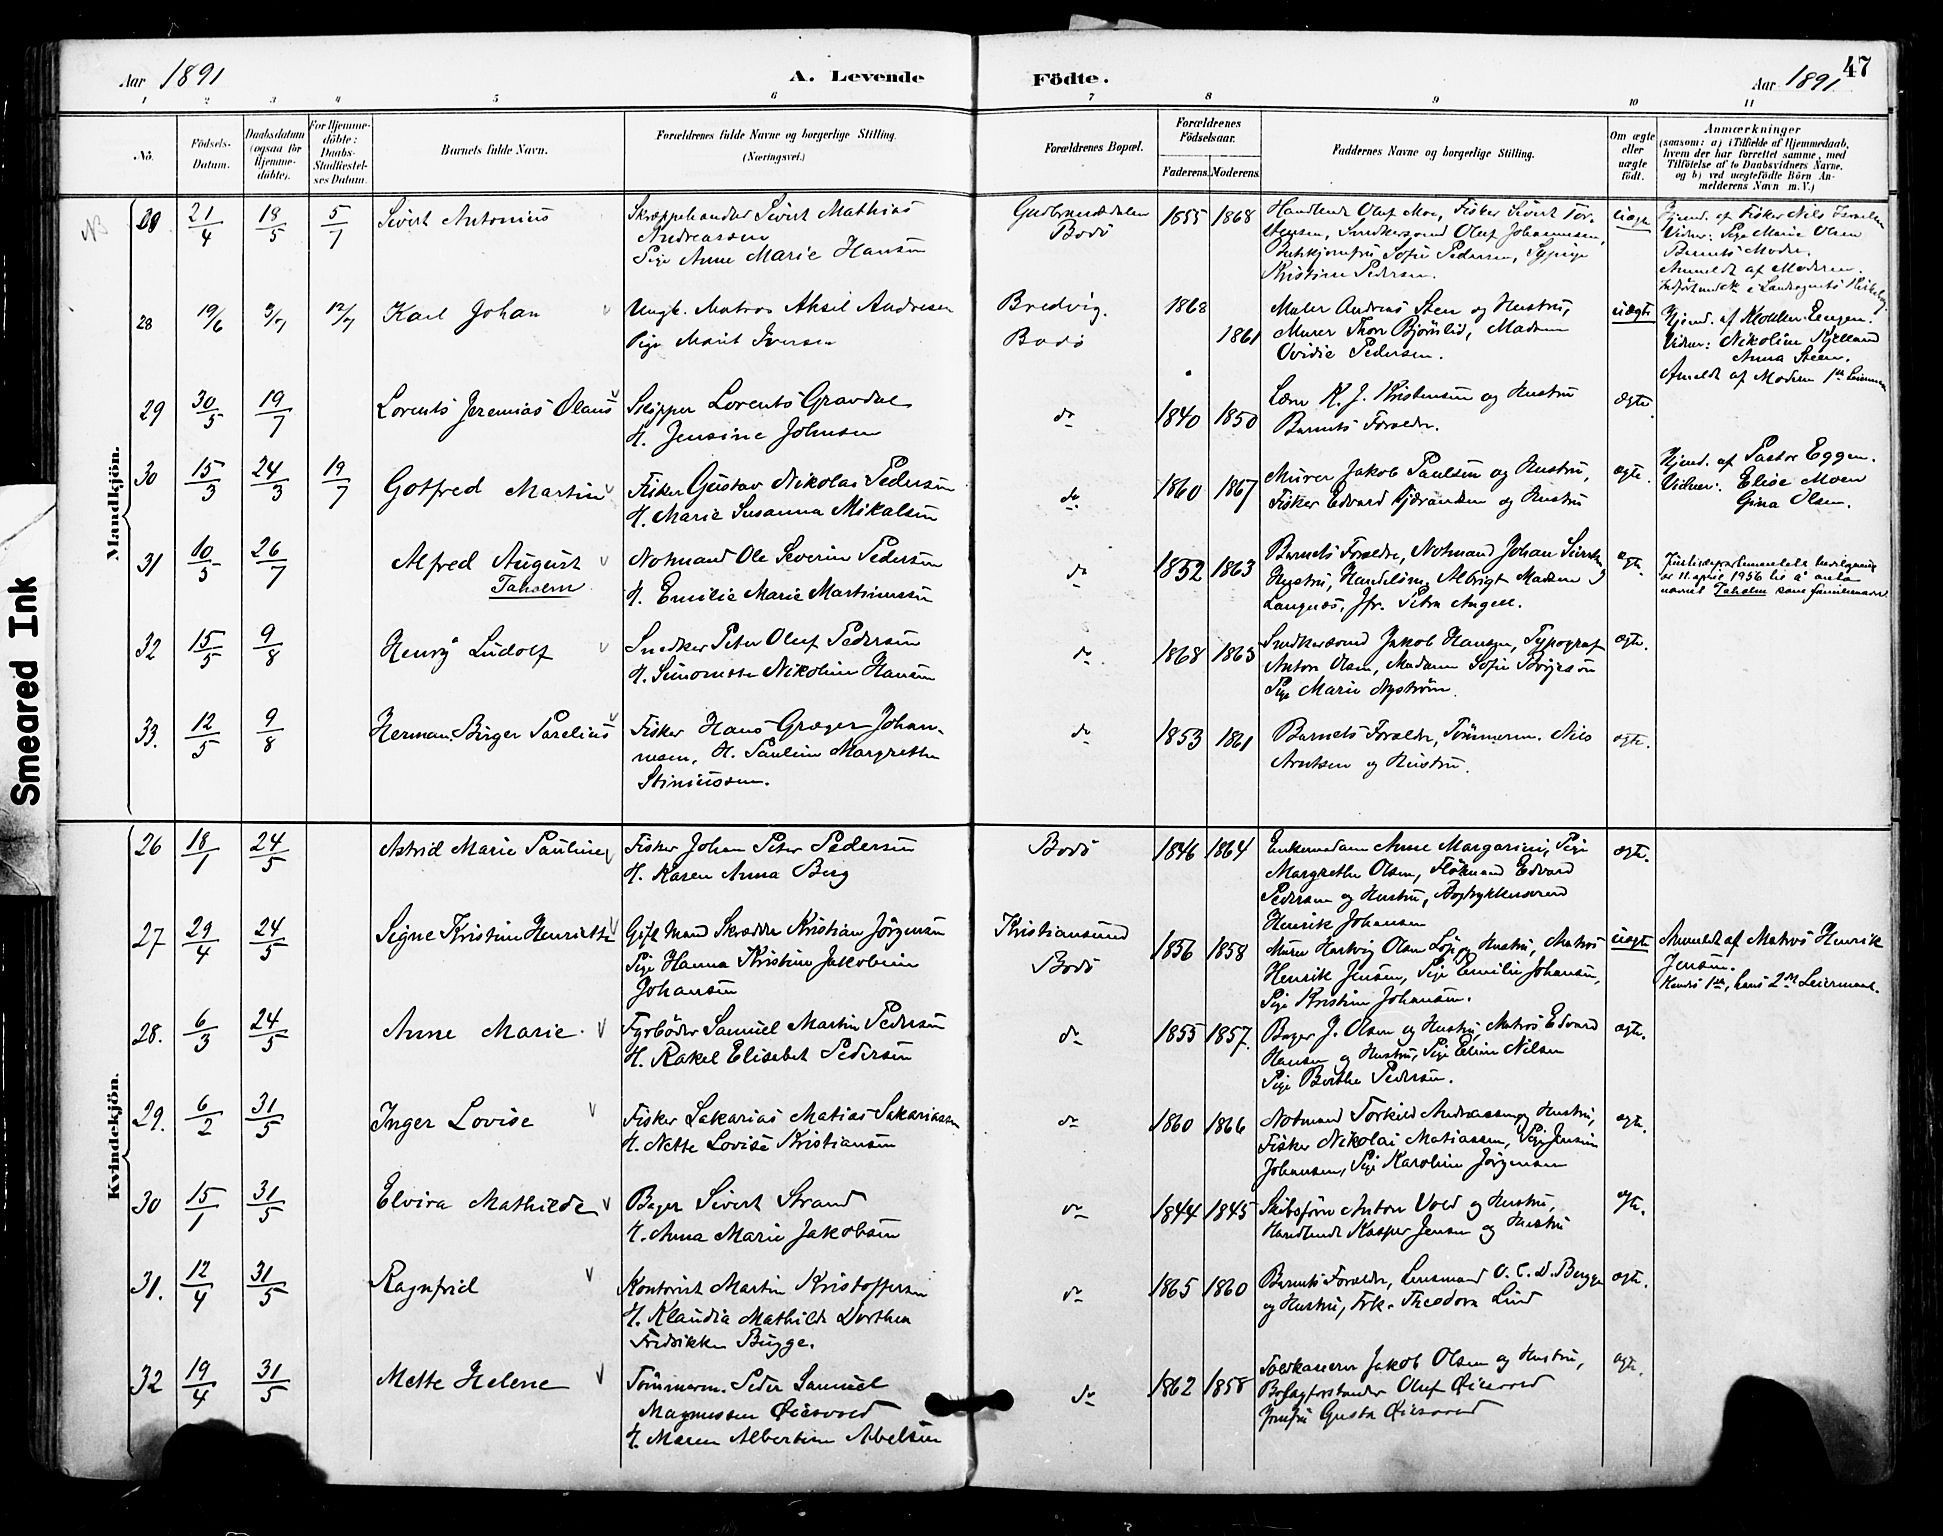 Aar 1891
A. Levende
Födte.
Aar 1891
47
1 2 3 4 5 6 7 8 9 10 11
No.
Födsels-
Datum.
Daabsdatum
(ogsaa for
Hjemme-
döbte).
For Hjemme-
döbte:
Daabs-
Stadfæstel-
ses Datum.
Barnets fulde Navn.
Forældrenes fulde Navne og borgerlige Stilling.
(Næringsvei.)
Forældrenes Bopæl.
Forældrenes
Födselsaar.
Faderens. Moderens.
Faddernes Navne og borgerlige Stilling.
Om ægte
eller
uægte
födt.
Anmærkninger
(saasom: a) i Tilfælde af Hjemmedaab,
hvem der har forrettet samme, med
Tilföielse af to Daabsvidners Navne,
og b) ved uægtefödte Börn An-
melderens Navn m. V.)
Smeared Ink
Mandkjön.
NB 21/4 18/5 5/7 Sivert Antonius
Skræppehandler Sivert Mathias
Andreassen
Pige Anne Marie Hansen
Gudbrandsdalen
Bodö
1855 1868
Handlende Oluf Moe, Fisker Sivert Tor-
Snedkersvend Oluf Johannessen,
Sofie Pedersen, Sypige
Kristine Pedersen.
uægte
Hjemd. af Fisker Nils
Vidner: Pige Marie Olsen
Barnets Moder.
Anmeldt af Moderen.
28 19/6 5/7 12/7 Karl Johan
Ungk. Matros Aksel Andresen
Pige Marit Iversen
Bredvig.
Bodö
1868
1861
Maler Andreas Steen og Hustru,
Murer Thore Bjørnlid, Madam
Ovidie Pedersen.
uægte
Hjemd. af Klokker Engen.
Vidner: Nikoline Kjelland
Anna Steen.
Anmeldt af Moderen 1ste Leiermaal
29 30/5 19/7 Lorents Jeremias Olaus
Skipper Lorents Gravdal
H. Jensine Johnsen
do 1840 1850
Lærer K. J. Kristensen og Hustru
Barnets Forældre.
ægte.
30 15/3 24/3 19/7 Gotfred Martin
Fisker Gustav Nikolai Pedersen
H. Marie Susanna Mikalsen
do 1860 1867
Murer Jakob Paulsen og Hustru,
Fisker Edvard og Hustru
ægte.
Hjemd. af Pastor Eggen.
Vidner: Elise Moen
Gina Olsen.
31 10/5 26/7 Alfred August
Taholm
Notmand Ole Severin Pedersen
H. Emilie Marie Martinussen
do 1852 1863
Barnets Forældre, Notmand Johan
Hustru, Albrigt Madsen
Langnæs, Jfr. Petra Angell.
ægte.
Justisdepartementets bevilgning
av 11. april 1956 til å anta
navnet Taholm som familienavn
32 15/5 9/8 Henry Ludolf
Snedker Peter Oluf Pedersen
H. Nikoline Hansen
do. 1868 1863
Snedkersvend Jakob Hansen, Typograf
Anton Olsen, Madam Sofie
Pige Marie Nyström.
ægte.
33. 12/5 9/8 Herman Birger Parelius
Fisker Hans Græger Johan-
nesen, H. Pauline Margrethe
Stiniussen.
do 1853 1861
Barnets Forældre, Tömmerm. Nils
Arntsen og Hustru.
ægte.
Kvindekjön.
26 18/1 24/5 Astrid Marie Pauline
Fisker Johan Peter Pedersen
H. Karen Anna Berg
Bodö 1846 1864
Enkemadam Anne Margarine, Pige
Margrethe Olsen, Edvard
Pedersen og Hustru, Bogtrykkersvend
Henrik Johansen
ægte.
27 29/4 24/5 Signe Kristine Henriette
Gift Mand Skrædder Kristian Jörgensen
Pige Hanna Kristine Jakobine
Johansen
Kristiansund
Bodö
1856 1858
Murer Hartvig Olsen og Hustru, Matros
Henrik Jensen, Pige Emilie Johansen,
Pige Kristine Johansen.
uægte
Anmeldt af Matros Henrik
Jensen.
Hendes 1ste, hans 2det Leiermaal.
28. 6/3 24/5 Anne Marie.
Fyrböder Samuel Martin Pedersen
H. Rakel Elisebet Pedersen
do 1855 1857.
Bager J. Olsen og Hustru, Matros Edvard
Hansen og Hustru, Pige Eline Nilsen
Pige Berthe Pedersen.
ægte.
29. 6/2 31/5 Inger Lovise
Fisker Sakarias Matias Sakariassen
H. Nette Lovise Kristiansen
do 1860 1866
Notmand Torkild Andreassen og Hustru,
Fisker Nikolai Matiassen, Pige Jensine
Johansen, Pige Karoline Jörgensen
ægte.
30 15/1 31/5 Elvira Mathilde
Bager Sivert Strand
H. Anna Marie Jakobsen
do 1844 1845
Skibsförer Anton Vold og Hustru,
Handlende Kasper Jensen og Hustru
ægte.
31. 12/4 31/5 Ragnfrid
Kontorist Martin Kristoffersen
H. Klaudia Mathilde Dorthea
Fredrikke Bugge.
do 1865 1860
Barnets Forældre, Lensmand O. C. D. Bugge
og Hustru, Frk. Theodora Lind
ægte.
32 19/4 31/5 Mette Helene
Tömmerm. Peder Samuel
Magnussen Öiesvold
H. Maren Albertine Abelsen
do 1862 1858
Toldkasserer Jakob Olsen og Hustru,
Oluf Öiesvold
Jomfru Gusta Öiesvold
ægte.